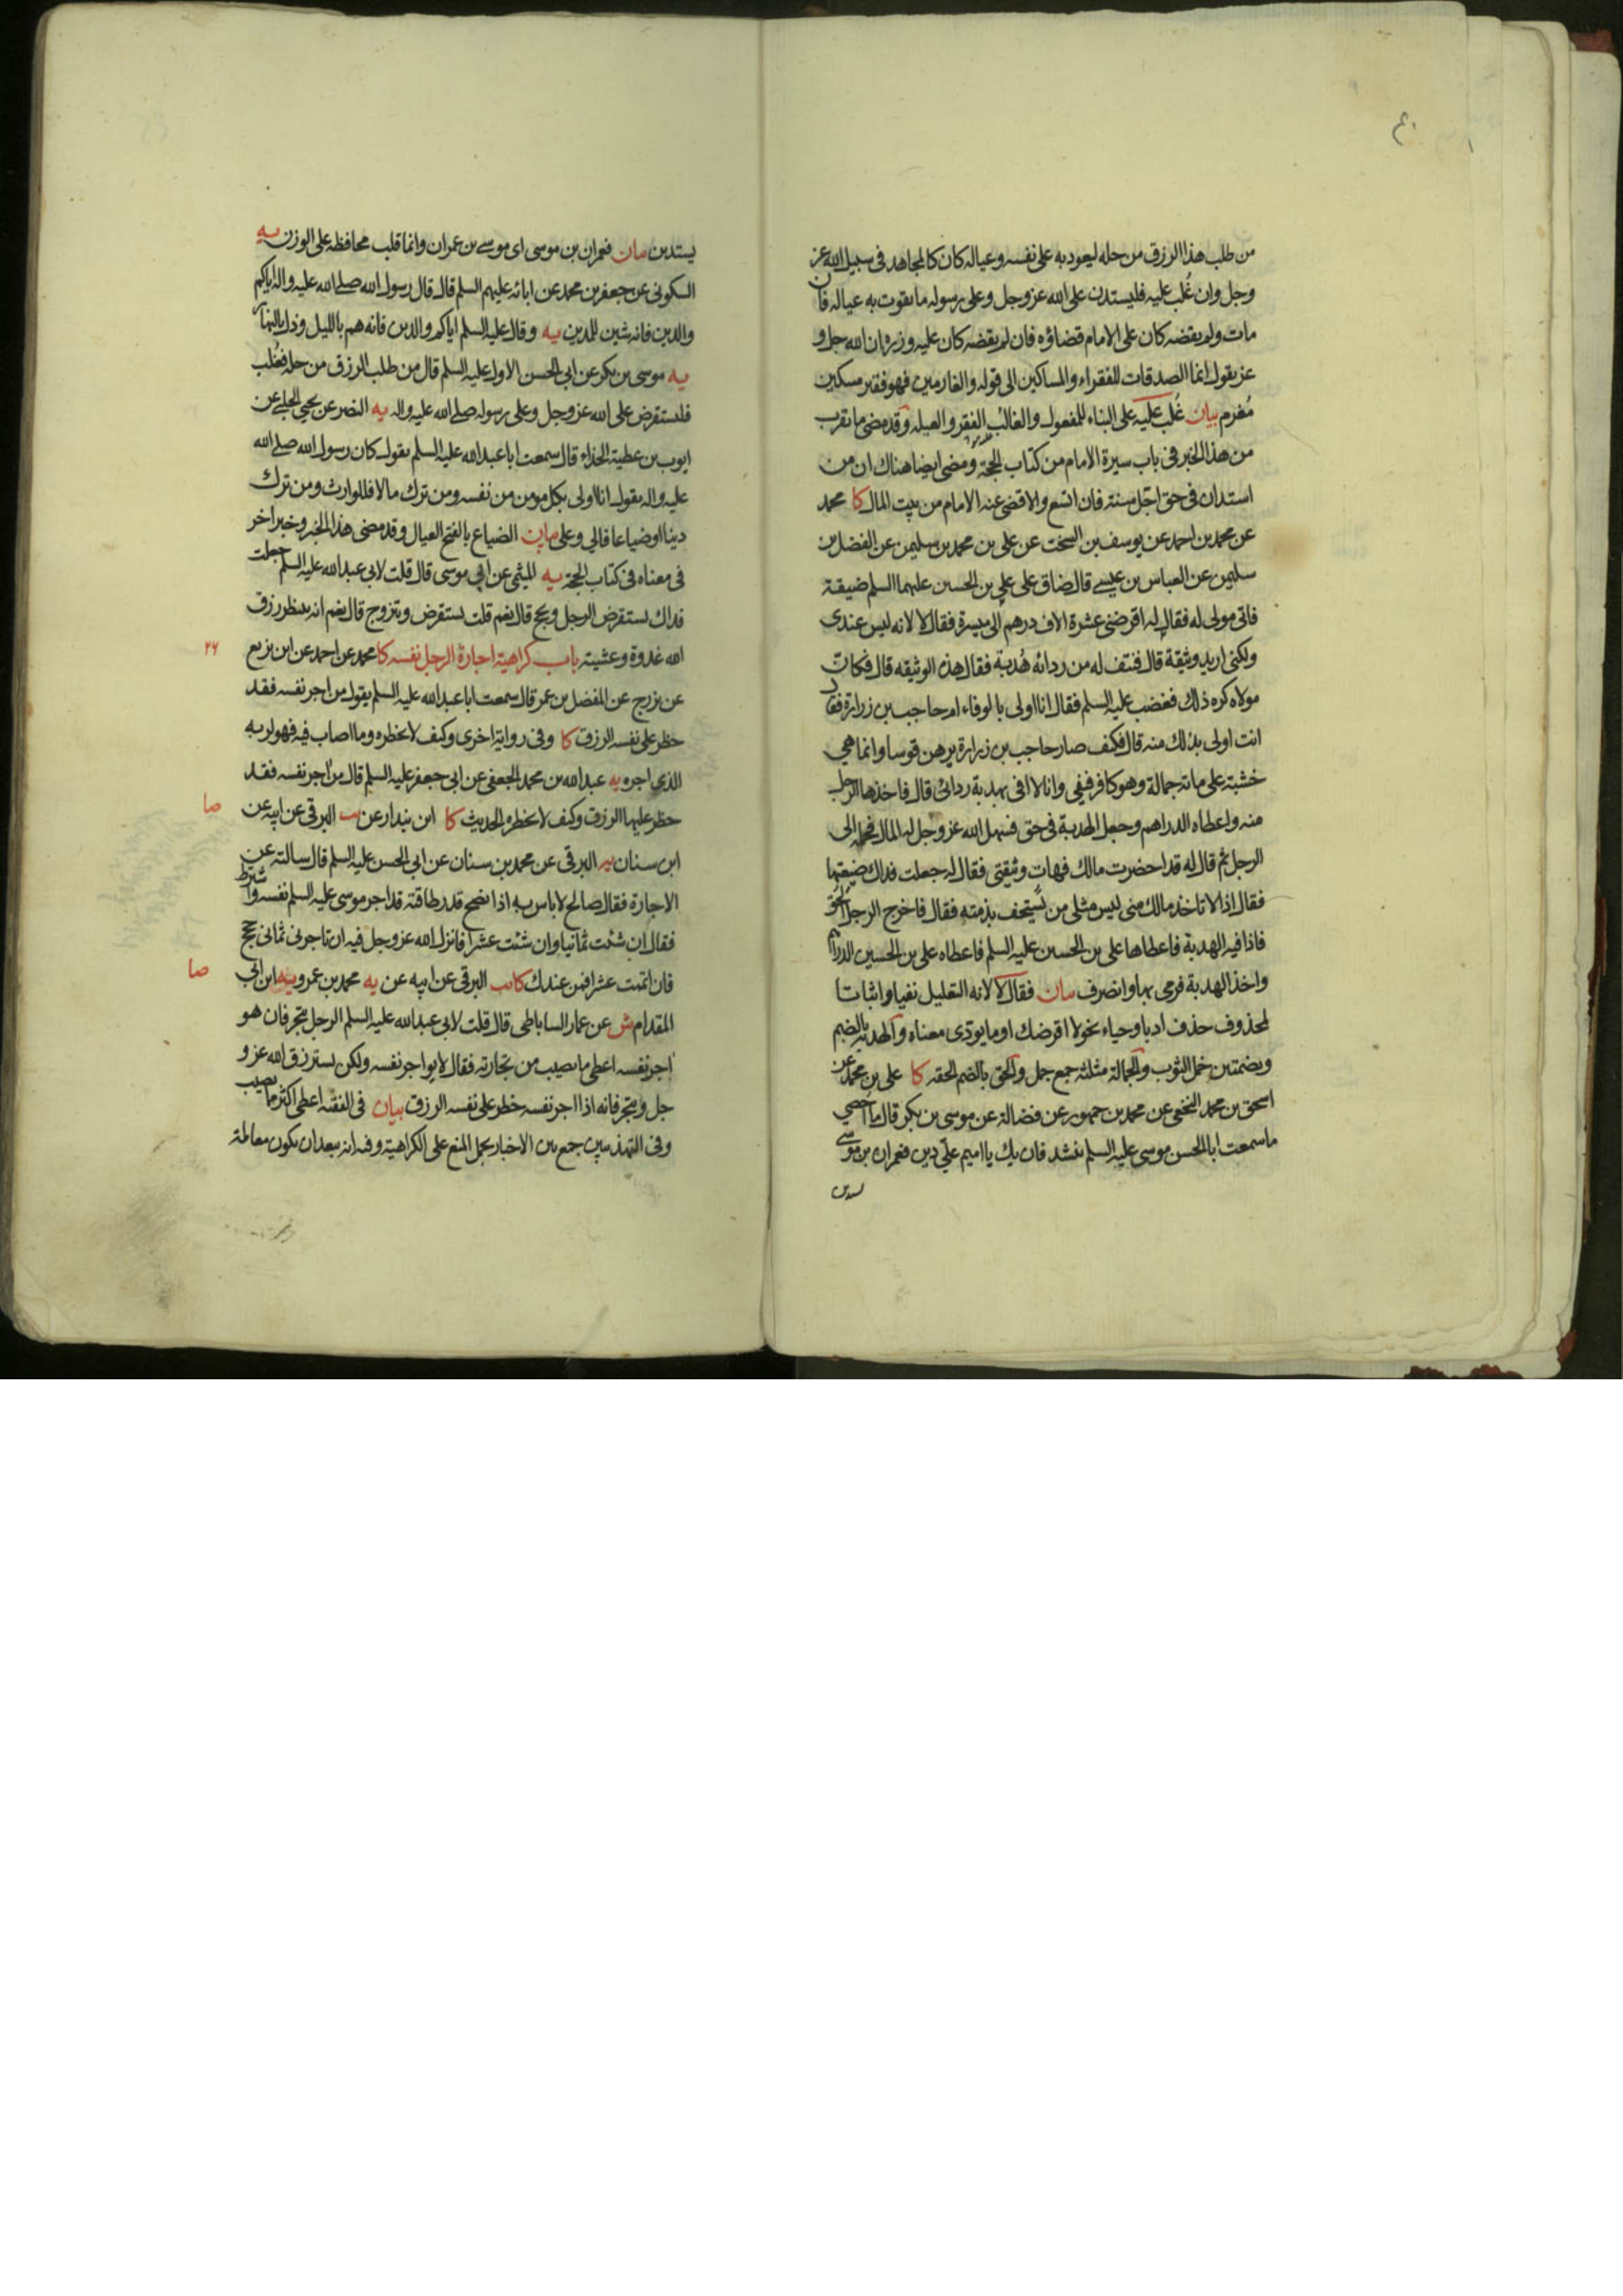 ٤٠
من طلب هذا الرزق من حله ليعود به على نفسه وعياله كان كالمجاهد فى سبيل الله عز
وجل وان غُلب عليه فليستدن على الله عز وجل وعلى رسوله ما يقوت به عياله فان
مات ولم يقضه كان على الامام قضاؤه فان لم يقضه كان عليه وزره ان الله جل و
عز يقول انما الصدقات للفقراء والمساكين الى قوله والغارمين فهو فقير مسكين
مُغرم بيان غُلب عليه على البناء للمفعول والغالب الفقر والعيله وقد مضى ما يقرب
من هذا الخبر فى باب سيرة الامام من كتاب الحجة ومضى ايضا هناك ان من
استدان فى حق اجّل سنة فان اتسع والا قضى عنه الامام من بيت المال كا محمد
عن محمد بن احمد عن يوسف بن السخت عن على بن محمد بن سليمن عن الفضل بن
سليمن عن العباس بن عيسى قال ضاق على على بن الحسين عليهما السلم ضيقة
فاتى مولى له فقال له اقرضنى عشرة الاف درهم الى ميسرة فقال لا لانه ليس عندى
ولكنى اريد وثيقة قال فنتف له من ردائه هُدبة فقال هذه الوثيقه قال فكانّ
مولاه كره ذلك فغضب عليه السلم فقال انا اولى بالوفاء ام حاجب بن زرارة فقال
انت اولى بذلك منه قال فكيف صار حاجب بن زرارة يرهن قوسا وانما هى
خشبة على مائة جمالة وهو كافر فيفى وانا لا افى بهدبة ردائى قال فاخذها الرجل
منه واعطاه الدراهم وجعل الهدبة فى حق فسهل الله عز وجل له المال فحمله الى
الرجل ثم قال له قد احضرت مالك فهات وثيقتى فقال له جعلت فداك ضيعتها
فقال اذا لا تاخذ مالك منى ليس مثلى من يُستخف بذمته فقال فاخرج الرجل الحُق
فاذا فيه الهدبة فاعطاها على بن الحسين عليه السلم فاعطاه على بن الحسين الدراهم
واخذ الهدبة فرمى بها وانصرف بيان فقال لا لانه التعليل نفيا واثباتا
لمحذوف حذف ادبا وحياء نحو لا اقرضك او ما يؤدى معناه والهدبه بالضم
وبضمتين خمل الثوب والجمالة مثلثه جمع جمل والحق بالضم الحقه كا على بن محمد عن
اسحق بن محمد النخعى عن محمد بن جمهور عن فضالة عن موسى بن بكر قال ما احصي
ما سمعت ابا الحسن موسى عليه السلم ينشد فان يك يا اميم علىّ دين فعمران بن موسى
يستدين
يستدين بيان فعمران بن موسى اى موسى بن عمران وانما قلب محافظه على الوزن يه
السكونى عن جعفر بن محمد عن ابائه عليهم السلم قال قال رسول الله صلى الله عليه واله اياكم
والدين فانه شين للدين يه وقال عليه السلم اياكم والدين فانه هم بالليل وذل بالنهار
يه موسى بن بكر عن ابى الحسن الاول عليه السلم قال من طلب الرزق من حله فغُلب
فليستقرض على الله عز وجل وعلى رسوله صلى الله عليه واله يه النضر عن يحيى الحلبى عن
ايوب بن عطية الحذاء قال سمعت ابا عبد الله عليه السلم يقول كان رسول الله صلى الله
عليه واله يقول انا اولى بكل مومن من نفسه ومن ترك مالا فللوارث ومن ترك
دينا او ضياعا فالى وعلى بيان الضياع بالفتح العيال وقد مضى هذا الخبر وخبر اخر
فى معناه فى كتاب الحجة يه الميثمى عن ابى موسى قال قلت لابى عبد الله عليه السلم جعلت
فداك يستقرض الرجل ويحج قال نعم قلت يستقرض ويتزوج قال نعم انه ينظر رزق
الله غدوة وعشية باب كراهية اجارة الرجل نفسه كا محمد عن احمد عن ابن بزيع
٢٦
عن بزرج عن المفضل بن عمر قال سمعت ابا عبد الله عليه السلم يقول من اجر نفسه فقد
حظر على نفسه الرزق كا وفى رواية اخرى وكيف لا يحظره وما اصاب فيه فهو لربه
الذى اجره يه عبد الله بن محمد الجعفى عن ابى جعفر عليه السلم قال من اجر نفسه فقد
حظر عليها الرزق وكيف لا يحظره الحديث كا ابن بندار عن يب البرقى عن ابيه عن
صا
ابن سنان يه البرقى عن محمد بن سنان عن ابى الحسن عليه السلم قال سالته عن
الاجارة فقال صالح لا باس به اذا نصح قدر طاقته قد اجر موسى عليه السلم نفسه واشترط
فقال ان شئت ثمانيا وان شئت عشرا فانزل الله عز وجل فيه ان تاجرنى ثمانى حجج
فان اتممت عشرا فمن عندك كا يب البرقى عن ابيه عن يه محمد بن عمرو يه ابن ابى
صا
المقدام ش عن عمار الساباطى قال قلت لابى عبد الله عليه السلم الرجل يتجر فان هو
اجر نفسه اعطى ما يصيب من تجارته فقال لا يواجر نفسه ولكن يسترزق الله عز و
جل ويتجر فانه اذا اجر نفسه حظر على نفسه الرزق بيان فى الفقيه اعطى اكثر ما يصيب
وفى التهذيبين جمع بين الاخبار بحمل المنع على الكراهية وفيه انه يبعد ان يكون معاملة